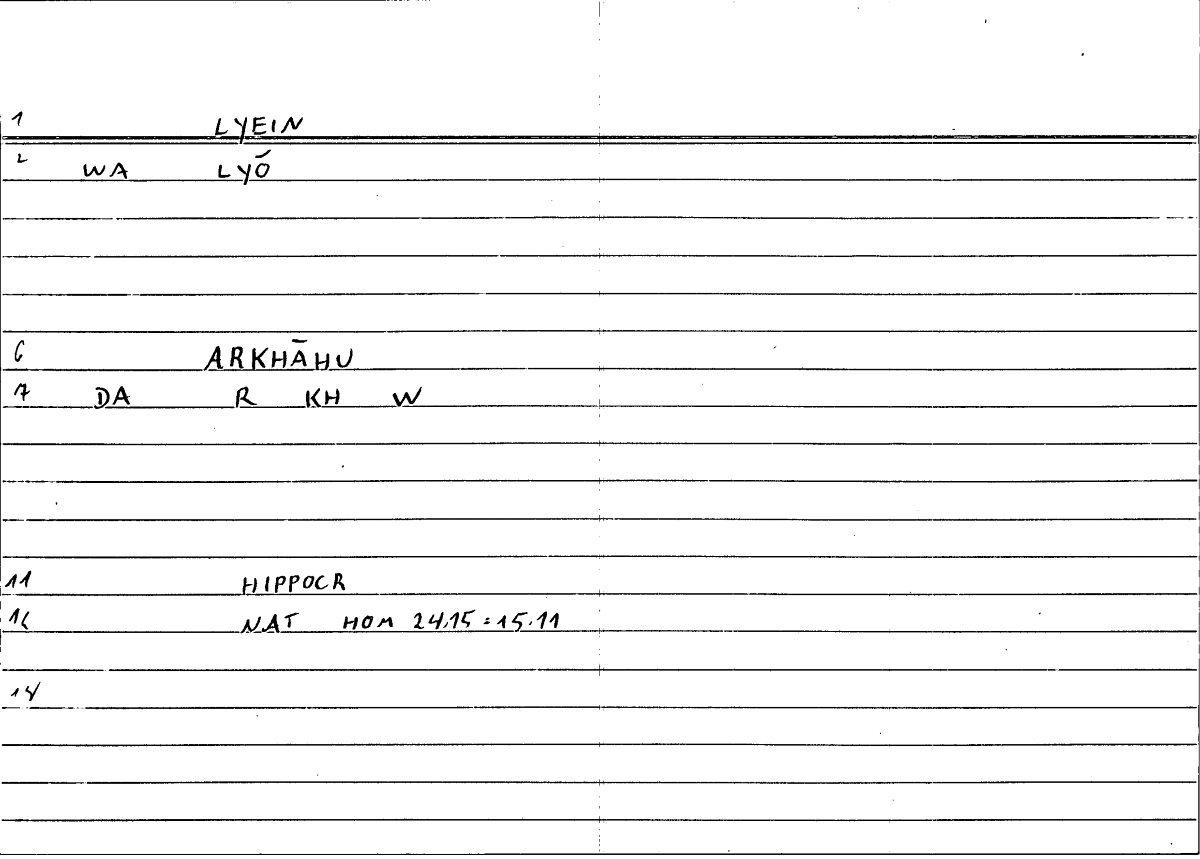 1 LYEIN
2 WA LYŌ
6 ARKHĀHU
7 DA R KH W
11 HIPPOCR
12 NAT HOM 24,15 = 15.11
14